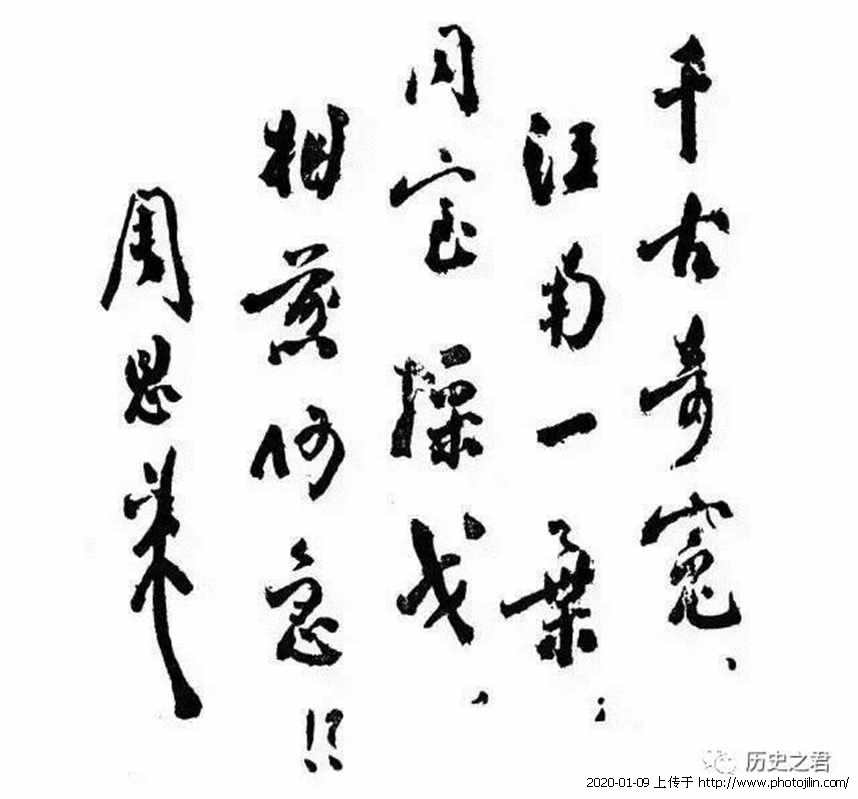 千古奇冤、
江南一葉；
同室操戈、
相煎何急！？
周恩来
历史之君
2020-01-09 上传于 http://www.photojilin.com/